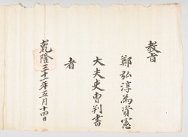 教旨
鄭弘淳為資憲
大夫吏曹判書
者
乾隆三十一年五月十四日